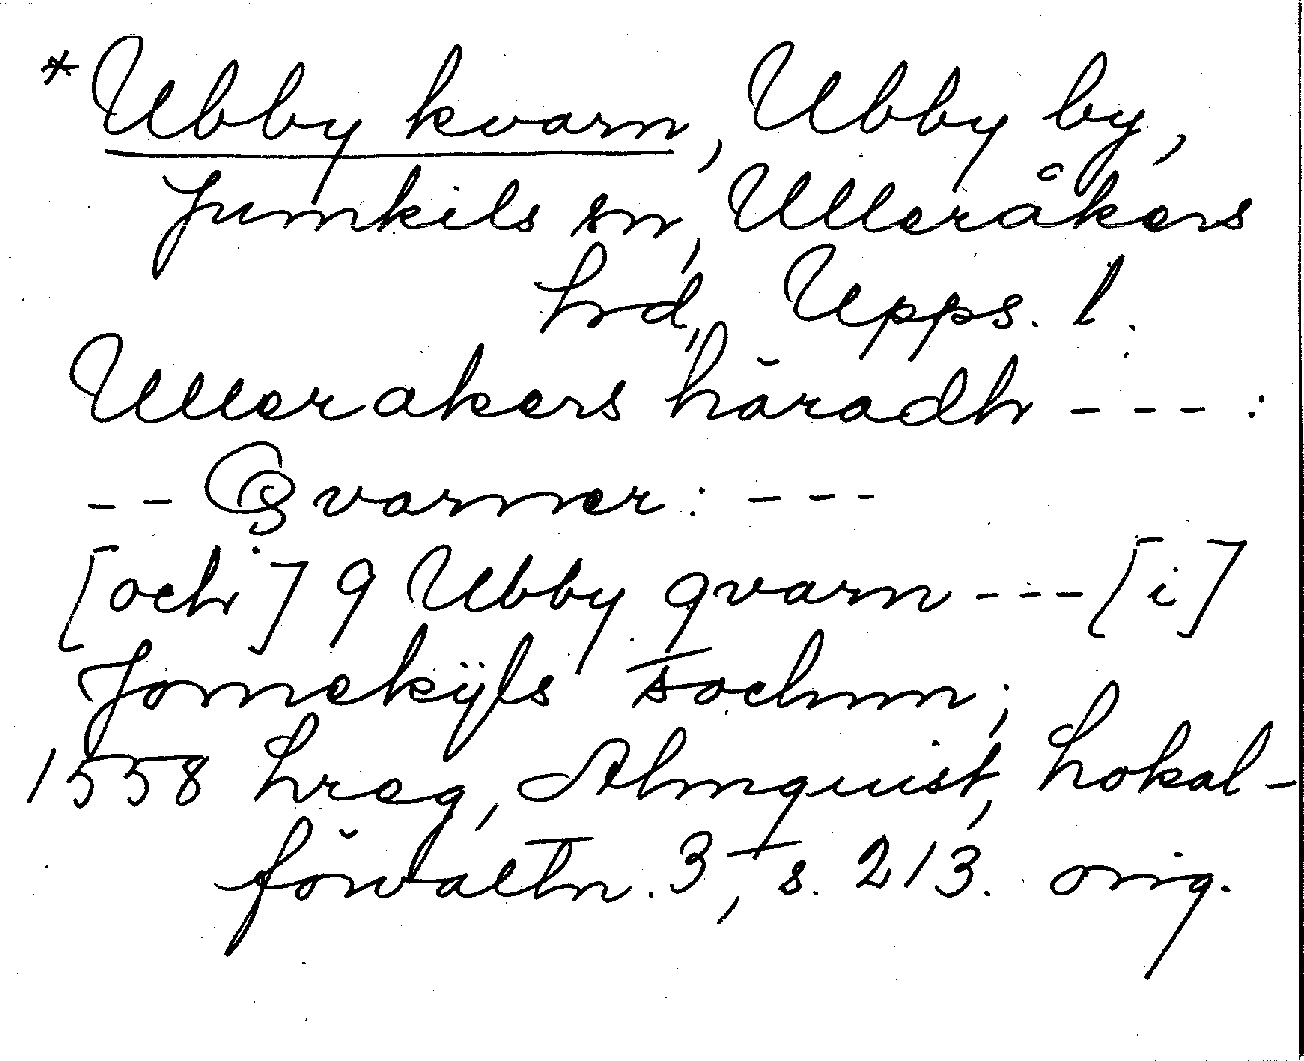 *Ubby kvarn, Ubby by,
Jumkils sn, Ulleråkers
hrd, Upps. l.
Ullerakers häradh --- :
-- Qvarner: ---
[och] 9 Ubby qvarn --- [i]
Jomekÿls sochnn;
1558 hreg, Almquist, Lokal-
förvaltn. 3, s. 213. orig.